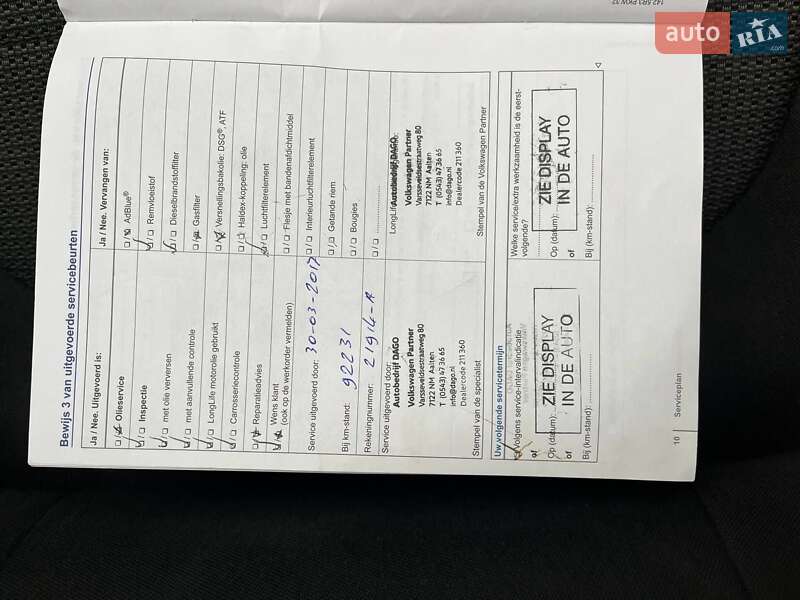 Bewijs 3 van uitgevoerde servicebeurten
Ja / Nee. Uitgevoerd is:
Olieservice
Inspectie
met olie verversen
met aanvullende controle
LongLife motorolie gebruikt
Carrosseriecontrole
Reparatieadvies
Wens klant
(ook op de werkorder vermelden)
Service uitgevoerd door: 30-03-2017
Bij km-stand: 92231
Rekeningnummer:
Service uitgevoerd door:
Autobedrijf DAGO
Volkswagen Partner
Varsseveldsestraatweg 80
7122 NM Aalten
T (0543) 47 36 65
info@dago.nl
Dealercode 211 360
Stempel van de specialist
Ja / Nee. Vervangen van:
AdBlue®
Remvloeistof
Dieselbrandstoffilter
Gasfilter
Versnellingsbakolie: DSG®, ATF
Haldex-koppeling: olie
Luchtfilterelement
Flesje met bandenafdichtmiddel
Interieurluchtfilterelement
Getande riem
Bougies
Autobedrijf DAGO
Volkswagen Partner
Varsseveldsestraatweg 80
7122 NM Aalten
T (0543) 47 36 65
info@dago.nl
Dealercode 211 360
Stempel van de Volkswagen Partner
Uw volgende servicetermijn
Volgens service-intervalindicatie
of
Op (datum):
of
Bij (km-stand):
ZIE DISPLAY
IN DE AUTO
Welke service/extra werkzaamheid is de eerst-
volgende?
Op (datum):
of
Bij (km-stand):
ZIE DISPLAY
IN DE AUTO
10 Serviceplan
auto RIA
.com